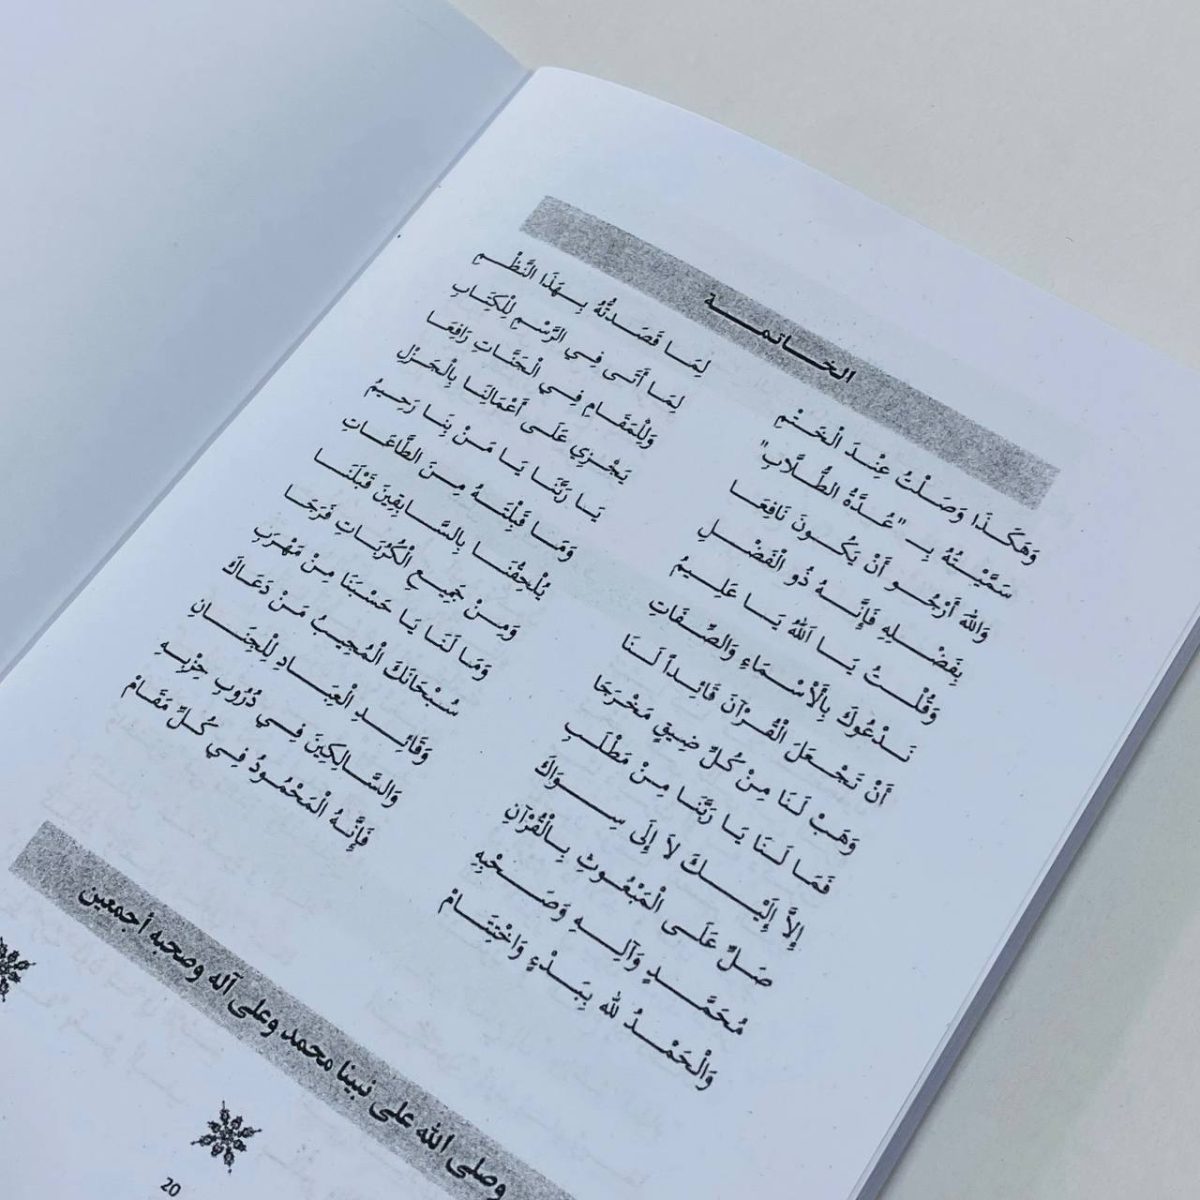 الخـاتمـــة
وَهَكَذَا وَصَلْتُ عِنْدَ الْخَتْمِ لِمَا قَصَدتُّهُ بِهَذَا النَّظْمِ
سَمَّيْتُهُ بِـ "عُدَّةُ الطُّلَّابِ" لِمَا أَتَى فِي الرَّسْمِ لِلْكِتَابِ
وَاللهَ أَرْجُو أَنْ يَكُونَ نَافِعَا وَلِلْمَقَامِ فِي الْجَنَّاتِ رَافِعَا
بِفَضْلِهِ فَإِنَّهُ ذُو الْفَضْلِ يَجْزِي عَلَى أَعْمَالِنَا بِالْجَزْلِ
وَقُلْتُ يَا اَللهُ يَا عَلِيمُ يَا رَبَّنَا يَا مَنْ بِنَا رَحِيمُ
نَدْعُوكَ بِالْأَسْمَاءِ وَالصِّفَاتِ وَمَا قَبِلْتَهُ مِنَ الطَّاعَاتِ
أَنْ تَجْعَلَ الْقُرْآنَ قَائِداً لَنَا يُلْحِقُنَا بِالسَّابِقِينَ قَبْلَنَا
وَهَبْ لَنَا مِنْ كُلِّ ضِيقٍ مَخْرَجَا وَمِنْ جَمِيعِ الْكُرُبَاتِ فَرَجَا
فَمَا لَنَا يَا رَبَّنَا مِنْ مَطْلَبِ وَمَا لَنَا يَا حَسْبَنَا مِنْ مَهْرَبِ
إِلاَّ إِلَيْكَ لاَ إِلَى سِوَاكَ سُبْحَانَكَ الْمُجِيبُ مَنْ دَعَاكَ
صَلِّ عَلَى الْمَبْعُوثِ بِالْقُرْآنِ وَقَائِدِ الْعِبَادِ لِلْجِنَانِ
مُحَمَّدٍ وَآلِهِ وَصَحْبِهِ وَالسَّالِكِينَ فِي دُرُوبِ حِزْبِهِ
وَالْحَمْدُ للهِ بِبَدْءٍ وَاخْتِتَامْ فَإِنَّهُ الْمَحْمُودُ فِي كُلِّ مَقَامْ
وصلى الله على نبينا محمد وعلى آله وصحبه أجمعين
20